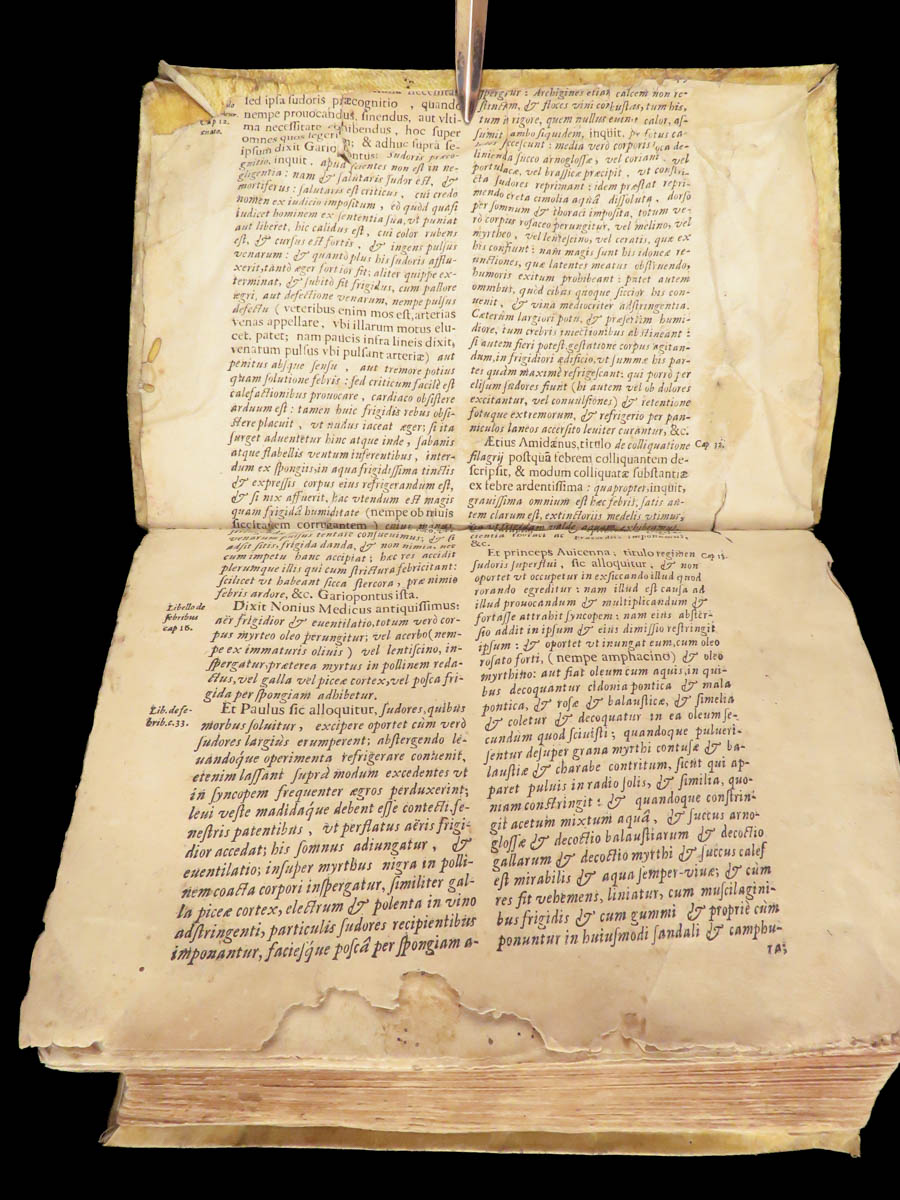 neceſsitas
ſed ipſa ſudoris præcognitio, quando
nempe prouocandus, ſinendus, aut vlti-
ma neceſsitate cohibendus, hoc ſuper
Cap 12.
omnes quos legerim; & adhuc ſupra ſe-
ipſum dixit Gariopontus: Sudoris præco-
gnitio, inquit, apud ſcientes non eſt in ne-
gligentia: nam & ſalutaris ſudor eſt, &
mortiferus: ſalutaris eſt criticus, cui credo
nomen ex iudicio impoſitum, eò quòd quaſi
iudicet hominem ex ſententia ſua, vt puniat
aut liberet, hic calidus eſt, cui color rubens
eſt, & curſus eſt fortis, & ingens pulſus
venarum: & quantò plus his ſudoris afflu-
xerit, tantò æger fortior fit: aliter quippe ex-
terminat, & ſubitò fit frigidus, cum pallore
ægri, aut defectione venarum, nempe pulſus
defectu (veteribus enim mos eſt, arterias
venas appellare, vbi illarum motus elu-
cet, patet; nam paucis infra lineis dixit,
venatum pulſus vbi pulſant arteriæ) aut
penitus abſque ſenſu, aut tremore potius
quam ſolutione febris: ſed criticum facilè eſt
calefactionibus prouocare, cardiaco obſiſtere
arduum eſt: tamen huic frigidis rebus obſi-
ſtere placuit, vt nudus iaceat æger; ſi ita
ſurget aduentetur hinc atque inde, ſabanis
atque flabellis ventum inferentibus, inter-
dum ex ſpongijs, in aqua frigidiſſima tinctis
& expreſſis corpus eius refrigerandum eſt,
& ſi nix affuerit, hac vtendum eſt magis
quam frigidâ humiditate (nempe ob niuis
ſiccitatem corrugantem) cuius manus
venarum pulſus tentare conſueuimus; & ſi
adſit ſitis, frigida danda, & non nimia, nec
cum impetu hanc accipiat; hæc res accidit
plerumque illis qui cum ſtrictura febricitant:
ſcilicet vt habeant ſicca ſtercora, præ nimio
febris ardore, &c. Gariopontus iſta.
Libello de
febribus
cap 16.
Dixit Nonius Medicus antiquiſsimus:
aër frigidior & euentilatio, totum verò cor-
pus myrteo oleo perungitur; vel acerbo (nem-
pe ex immaturis oliuis) vel lentiſcino, in-
ſpergatur, præterea myrtus in pollinem reda-
ctus, vel galla vel piceæ cortex, vel poſca fri-
gida per ſpongiam adhibetur.
Lib. de fe-
brib. c. 33.
Et Paulus ſic alloquitur, ſudores, quibus
morbus ſoluitur, excipere oportet cùm verò
ſudores largiùs erumperent; abſtergendo le-
uandoque operimenta refrigerare conuenit,
etenim laſſant ſuprà modum excedentes vt
in ſyncopem frequenter ægros perduxerint;
leui veſte madidaque debent eſſe contecti, fe-
neſtris patentibus, vt perflatus aëris frigi-
dior accedat; his ſomnus adiungatur, &
euentilatio; inſuper myrthus nigra in polli-
nem coacta corpori inſpergatur, ſimiliter gal-
la piceæ cortex, electrum & polenta in vino
adſtringenti, particulis ſudores recipientibus
imponantur, facieſque poſcâ per ſpongiam a-
ſpergatur: Archigines etiam calcem non re-
ſtinctam, & floces vini combuſtas, tum his,
tum in rigore, quem nullus euincat calor, aſ-
ſumit ambo ſiquidem, inquit, per totus ca-
ſcceſcunt: media verò corporis loca de-
linienda ſucco arnogloſſæ, vel coriandri vel
portulacæ, vel braſſicæ præcipit, vt conſtri-
cta ſudores reprimant: idem præſtat repri-
mendo creta cimolia aquâ diſſoluta, dorſo
per ſomnum & thoraci impoſita, totum ve-
rò corpus roſaceo perungitur, vel melino, vel
myrtheo, vel lentiſcino, vel ceratis, quæ ex
his confiunt: nam magis ſunt his idoneæ re-
ſtinctiones, quæ latentes meatus obſtruendo,
humoris exitum prohibeant: patet autem
omnibus, quòd cibus quoque ſiccior his con-
uenit, & vina mediocriter adſtringentia.
Cæterùm largiori potu, & præſertim humi-
diore, tum crebris iniectionibus abſtineant:
ſi autem fieri poteſt, geſtatione corpus agitan-
dum, in frigidiori ædificio, vt ſummæ his par-
tes quàm maximè refrigeſcant; qui porrò per
eliſum ſudores fiunt (hi autem vel ob dolores
excitantur, vel conuulſiones) & retentione
fotuque extremorum, & refrigerio per pan-
niculos laneos accerſito leuiter curantur, &c.
Ætius Amidænus, titulo de colliquatione
Cap 32.
filagrij poſtquã febrem colliquantem de-
ſcripſit, & modum colliquatæ ſubſtantiæ
ex febre ardentiſsima: quapropter, inquit,
grauiſſima omnium eſt hæc febris, ſatis au-
tem clarum eſt, extinctorijs medelis vtimur,
&c.
Et princeps Auicenna: titulo regimen
Cap 15.
ſudoris ſuperflui, ſic alloquitur, & non
oportet vt occupetur in exſiccando illud quod
rorando egreditur: nam illud eſt cauſa ad
illud prouocandum & multiplicandum &
fortaſſe attrahit ſyncopem: nam eius abſter-
ſio addit in ipſum & eius dimiſſio reſtringit
ipſum: & oportet vt inungat eum, cum oleo
roſato forti, (nempe amphacino) & oleo
myrthino: aut fiat oleum cum aquis, in qui-
bus decoquantur cidonia pontica & mala
pontica, & roſæ & balauſtiæ, & ſimilia
& coletur & decoquatur in ea oleum ſe-
cundum quod ſciuiſti; quandoque pulueri-
ſentur deſuper grana myrthi contuſæ & ba-
lauſtiæ & charabe contritum, ſicut qui ap-
paret puluis in radio ſolis, & ſimilia, quo-
niam conſtringit: & quandoque conſtrin-
git acetum mixtum aquâ, & ſuccus arno-
gloſſæ & decoctio balauſtiarum & decoctio
gallarum & decoctio myrthi & ſuccus calef
eſt mirabilis & aqua ſemper-viuæ; & cùm
res fit vehemens, liniatur, cum muſcilagini-
bus frigidis & cum gummi & propriè cùm
ponuntur in huiuſmodi ſandali & camphu-
ra;